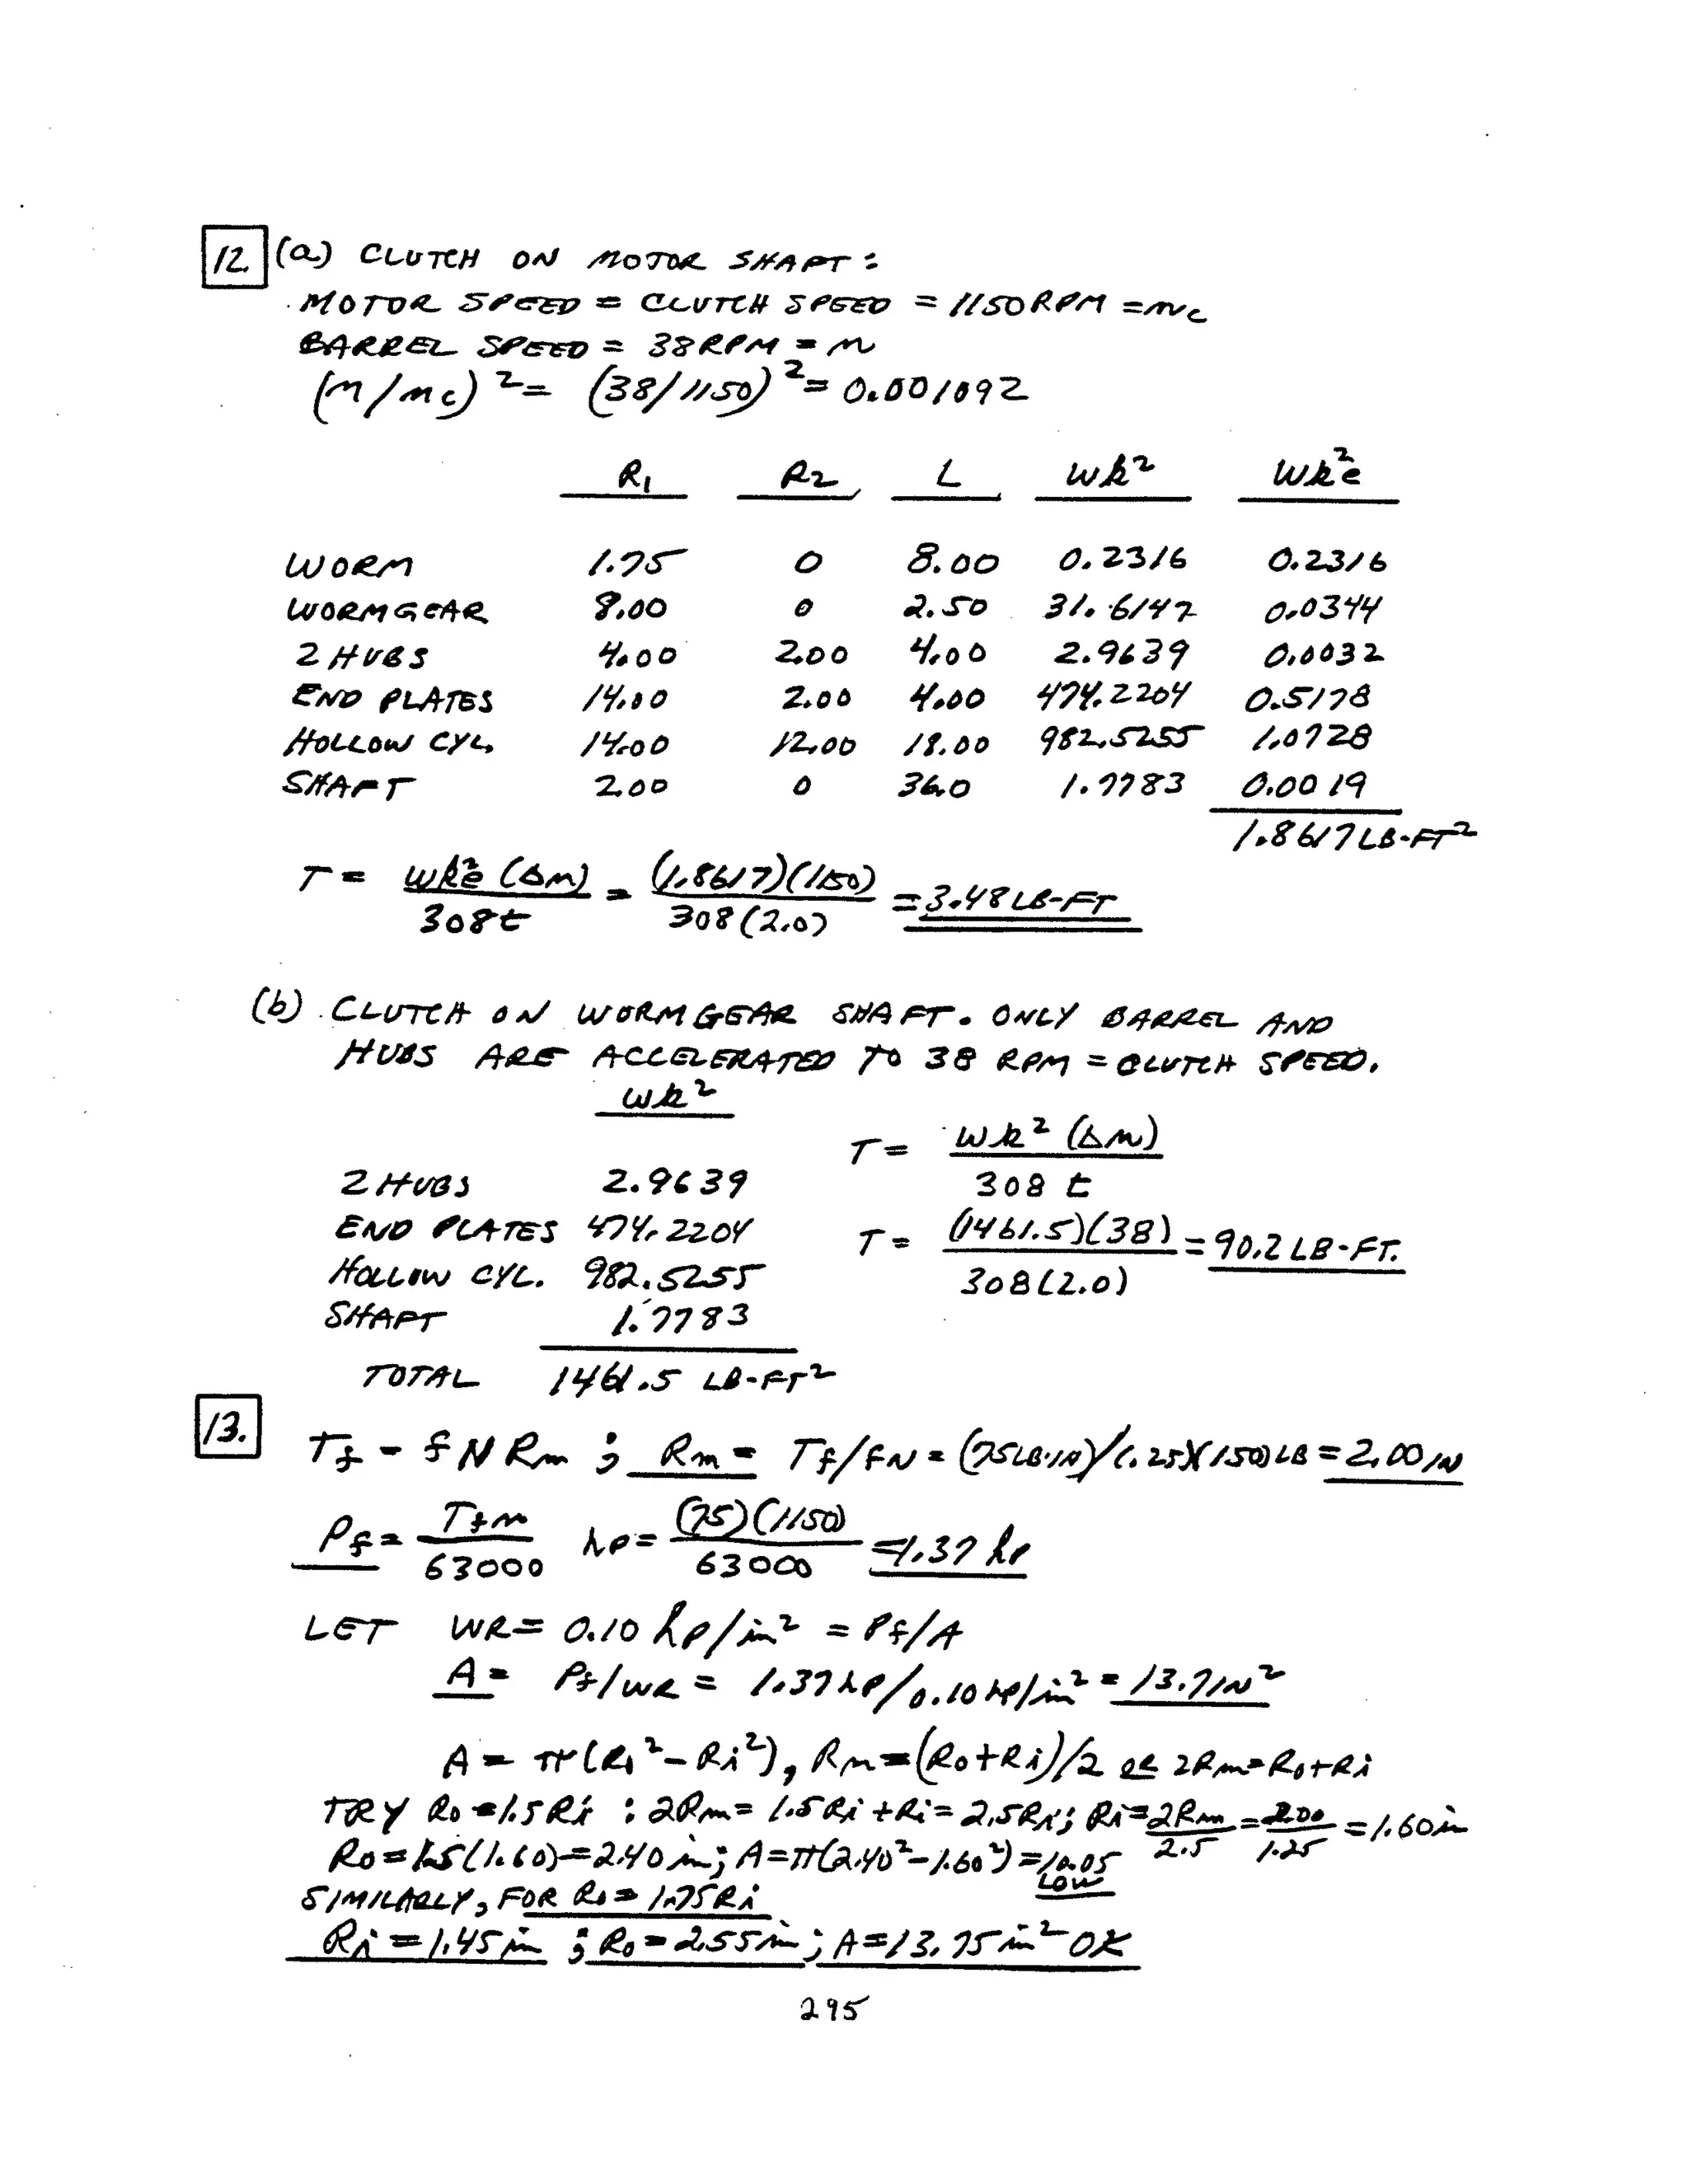 12. (a) CLUTCH ON MOTOR SHAFT:
MOTOR SPEED = CLUTCH SPEED = 1150 RPM = nc
BARREL SPEED = 38 RPM = n
(n/nc)² = (38/1150)² = 0.001092
R1 R2 L Wk² Wke²
WORM 1.75 0 8.00 0.2316 0.2316
WORMGEAR 8.00 0 2.50 31.6147 0.0344
2 HUBS 4.00 2.00 4.00 2.9639 0.0032
END PLATES 14.00 2.00 4.00 474.2204 0.5178
HOLLOW CYL. 14.00 12.00 18.00 982.5255 1.0728
SHAFT 2.00 0 36.0 1.7783 0.0019
1.8617 LB-FT²
T = Wke² (Δn) / 308t = (1.8617)(1150) / 308(2.0) = 3.48 LB-FT
(b) CLUTCH ON WORMGEAR SHAFT. ONLY BARREL AND
HUBS ARE ACCELERATED TO 38 RPM = CLUTCH SPEED.
Wk²
T = Wk² (Δn) / 308 t
2 HUBS 2.9639
END PLATES 474.2204 T = (1461.5)(38) / 308(2.0) = 90.2 LB-FT.
HOLLOW CYL. 982.5255
SHAFT 1.7783
TOTAL 1461.5 LB-FT²
13. Tf = f N Rm ; Rm = Tf/fN = (75 LB·IN)/(.25)(150) LB = 2.00 IN
Pf = Tf n / 63000 hp = (75)(1150) / 63000 = 1.37 hp
LET WR = 0.10 hp/in² = Pf/A
A = Pf/WR = 1.37 hP/0.10 hP/in² = 13.7 IN²
A = π(R1² - Ri²), Rm = (Ro+Ri)/2 OR 2Rm = Ro+Ri
TRY Ro = 1.5Ri : 2Rm = 1.5Ri + Ri = 2.5Ri; Ri = 2Rm / 2.5 = 2.00 / 1.25 = 1.60 in
Ro = 1.5(1.60) = 2.40 in; A = π(2.40² - 1.60²) = 10.05
LOW
SIMILARLY, FOR Ro = 1.75Ri
Ri = 1.45 in ; Ro = 2.55 in ; A = 13.75 in² OK
295